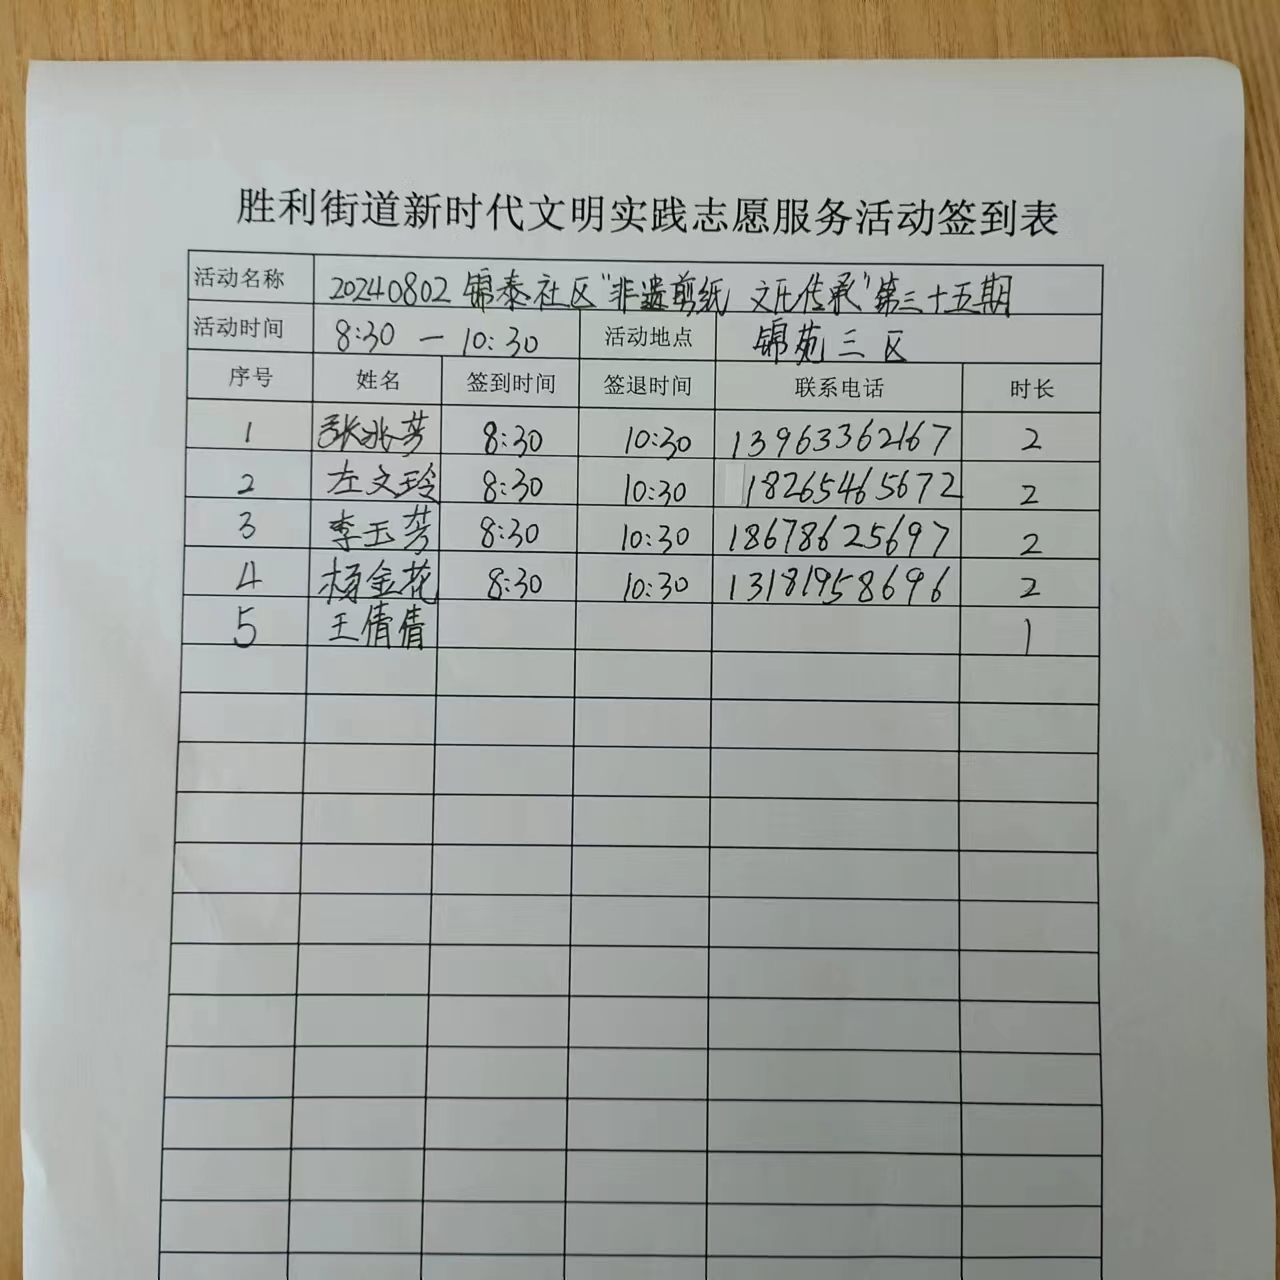 胜利街道新时代文明实践志愿服务活动签到表
活动名称 20240802 锦泰社区"非遗剪纸 文化传承"第三十五期
活动时间 8:30 — 10:30 活动地点 锦苑三区
序号 姓名 签到时间 签退时间 联系电话 时长
1 张兆芳 8:30 10:30 13963362167 2
2 左文玲 8:30 10:30 18265465672 2
3 李玉芳 8:30 10:30 18678625697 2
4 杨金花 8:30 10:30 13181958696 2
5 王倩倩 1